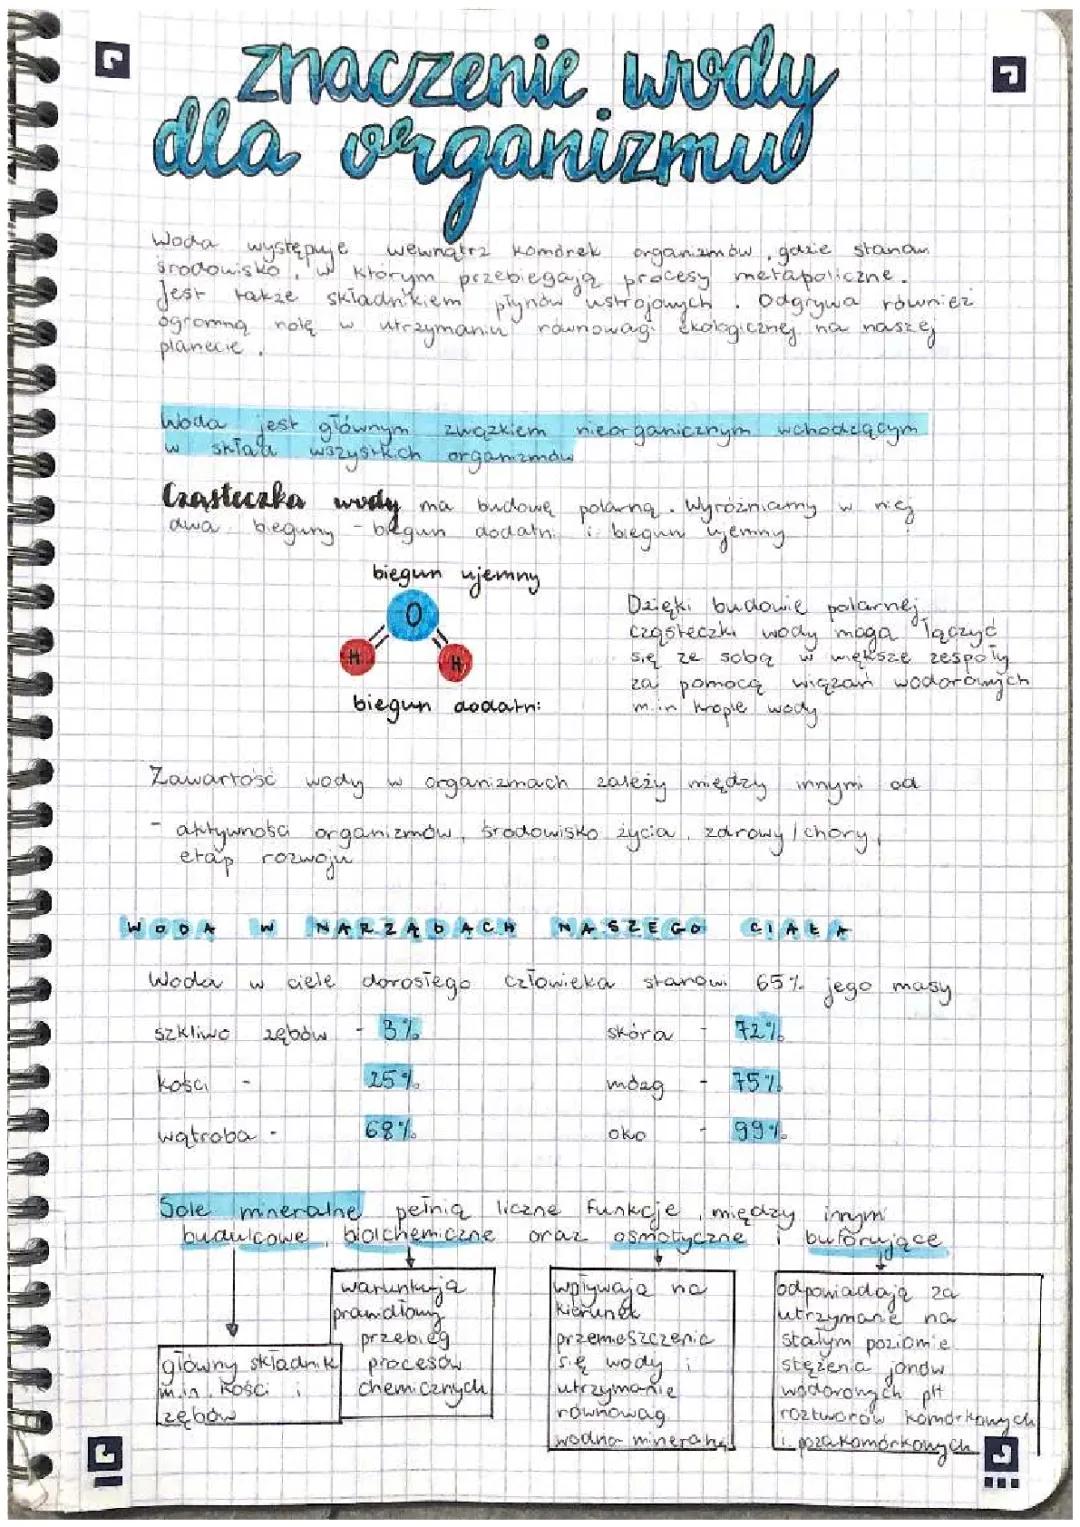 znaczenie wody
dla organizmu
Woda występuje wewnątrz komórek organizmów, gdzie stanowi
środowisko, w którym przebiegają procesy metapoliczne.
Jest także składnikiem płynów ustrojowych. Odgrywa również
ogromną rolę w utrzymaniu równowagi ekologicznej na naszej
planecie.
Woda jest głównym związkiem nieorganicznym wchodzącym
w skład wszystkich organizmów
Cząsteczka wody ma budowę polarną. Wyróżniamy w niej
dwa bieguny - biegun dodatni i biegun ujemny
biegun ujemny
O
H H
biegun dodatni
Dzięki budowie polarnej
cząsteczki wody mogą łączyć
się ze sobą w większe zespoły
za pomocą wiązań wodorowych
m.in krople wody
Zawartość wody w organizmach zależy między innymi od
- aktywności organizmów, środowisko życia, zdrowy/chory,
etap rozwoju
WODA W NARZĄDACH NASZEGO CIAŁA
Woda w ciele dorosłego człowieka stanowi 65% jego masy
szkliwo zębów - 3% skóra - 72%
kości - 25% mózg - 75%
wątroba - 68% oko - 99%
Sole mineralne pełnią liczne funkcje, między innymi
budulcowe, biolchemiczne oraz osmotyczne i buforujące
główny składnik
m.in. kości i
zębów
warunkują
prawidłowy
przebieg
procesów
chemicznych
wpływają na
kierunek
przemeszczenia
się wody i
utrzymanie
równowagi
wodno mineralnej
odpowiadają za
utrzymanie na
stałym poziomie
stężenia jonów
wodorowych pH
roztworów komórkowych
i pozakomórkowych